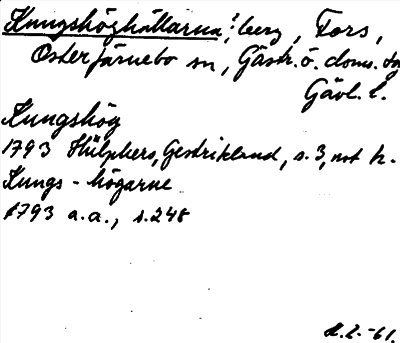 Kungshöghällarna,? berg, Fors,
Österfärnebo sn, Gästr. ö. doms. tg
Gävl. l.
Kungshög
1793 Hülphers, Gestrikland, s. 3, not h.
Kungs-högarne
1793 a.a., s. 248
-61.